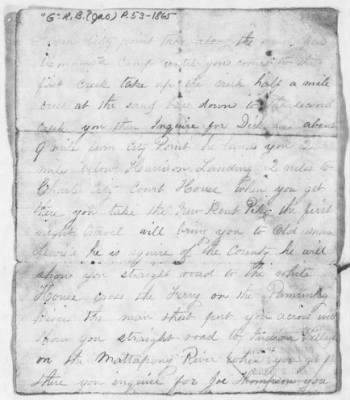 "G" R.B. (Jac) P. 53-1865
From City point take along the
Camp until you come to the
first creek take up the creek half a mile
cross at the sand bar down to the second
creek you then Inquire for Dick about
9 mile from City Point he lands you 2
miles below Harrison Landing 2 miles to
Charls City Court House when you get
there you take the New Kent Pike the first
night travel will bring you to Old man
he is squire of the County he will
show you straight road to the white
House cross the Ferry on the Pamunky
River the man that put you across will
show you straight road to Village
on the Mattapony River when you get
there you inquire for Joe Thompson you